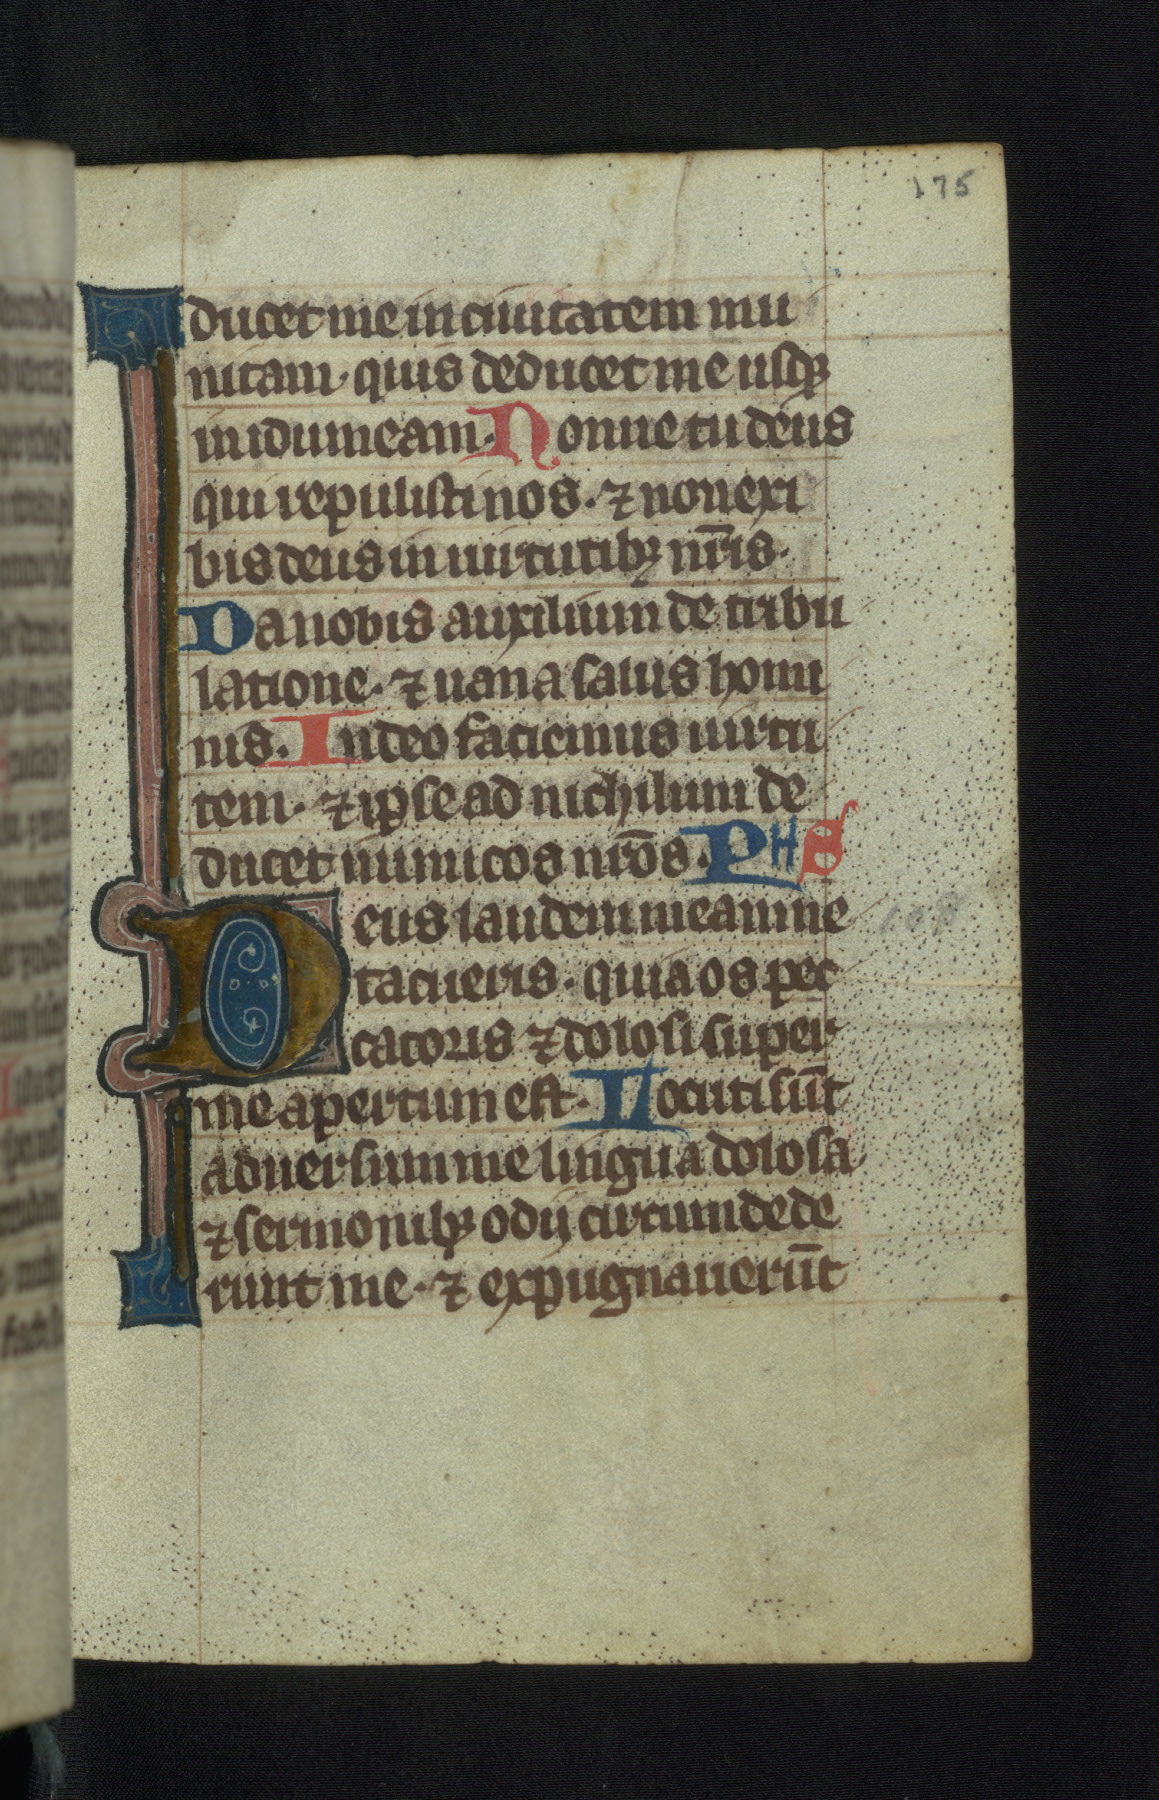 175
ducet me in ciuitatem mu
nitam · quis deducet me usqꝫ
in idumeam · Nonne tu deus
qui repulisti nos · ⁊ non exi
bis deus in uirtutibꝫ nr̄is ·
Da nobis auxilium de tribu
latione · ⁊ uana salus homi
nis · In deo faciemus uirtu
tem · ⁊ ipse ad nichilum de
ducet inimicos nr̄os · PHS
Deus laudem meam ne
tacueris · quia os pec
catoris ⁊ dolosi super
me apertum est · Locuti sūt
aduersum me lingua dolosa
⁊ sermonibꝫ odij circumdede
runt me · ⁊ expugnauerūt